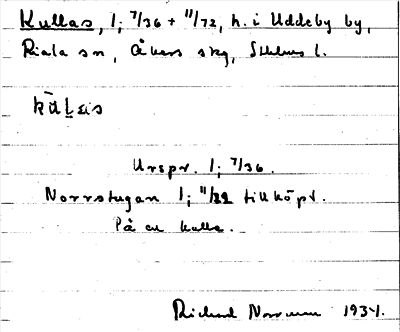 Kullas, 1; 7/36 + 11/72, h. i Uddeby by,
Riala sn, Åkers skg, Sthlms l.
Urspr. 1; 7/36.
Norrstugan 1; 11/72 tillköpt.
På en kulle.
Richard 1934.